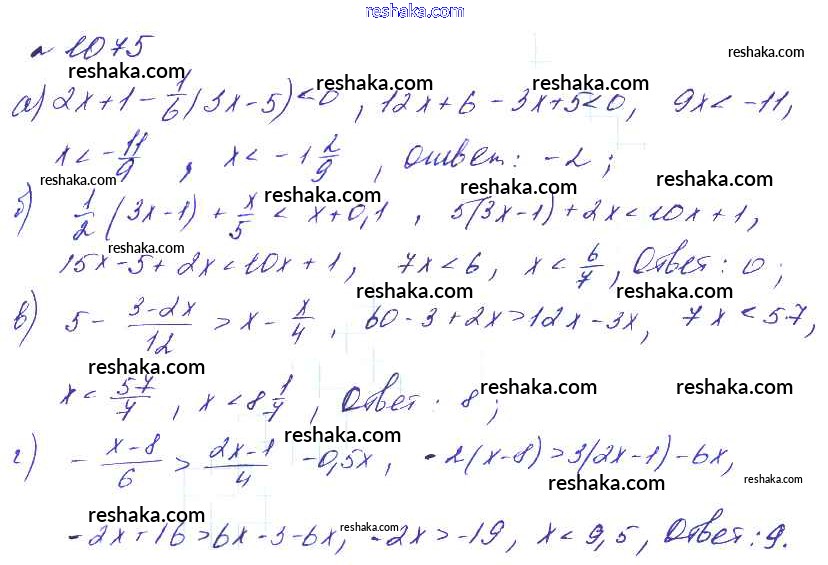 reshaka.com
№ 1075
reshaka.com reshaka.com reshaka.com
reshaka.com reshaka.com
а) 2x+1 - 1/6(3x-5)<0, 12x+6-3x+5<0, 9x<-11,
x<-11/9, x<-1 2/9, ответ: -2;
reshaka.com reshaka.com reshaka.com reshaka.com
б) 1/2(3x-1)+x/5 < x+0,1, 5(3x-1)+2x<10x+1,
reshaka.com
15x-5+2x<10x+1, 7x<6, x<6/7, Ответ: 0;
reshaka.com reshaka.com
в) 5 - (3-2x)/12 > x - x/4, 60-3+2x>12x-3x, 7x<57,
reshaka.com reshaka.com reshaka.com reshaka.com
x<57/7, x<8 1/7, Ответ: 8;
reshaka.com
г) -(x-8)/6 > (2x-1)/4 -0,5x, -2(x-8)>3(2x-1)-6x,
reshaka.com reshaka.com
reshaka.com reshaka.com reshaka.com
-2x+16>6x-3-6x, -2x>-19, x<9,5, Ответ: 9.